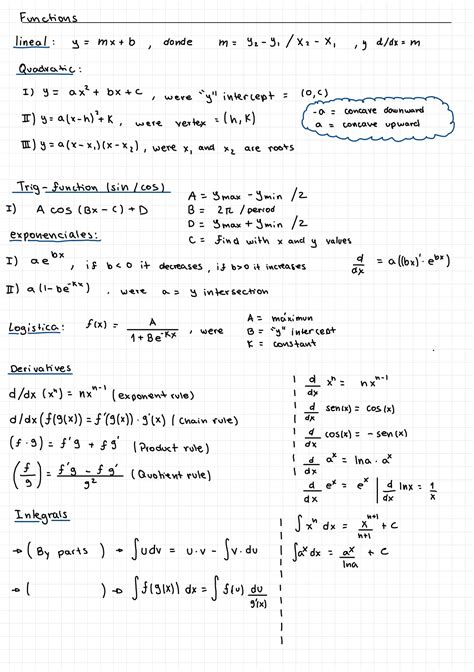 Functions
lineal: y = mx + b , donde m = y₂ - y₁ / x₂ - x₁ , y d/dx = m
Quadratic:
I) y = ax² + bx + c , were "y" intercept = (0,c)
-a = concave downward
a = concave upward
II) y = a(x-h)² + K , were vertex = (h,K)
III) y = a(x-x₁)(x-x₂) , were x₁ and x₂ are roots
Trig-function (sin/cos)
I) A cos (Bx - C) + D
A = ymax - ymin /2
B = 2π / period
D = ymax + ymin /2
C = find with x and y values
exponenciales:
I) ae^bx , if b<0 it decreases , if b>0 it increases d/dx = a((bx)' · e^bx)
II) a(1-be^-kx) . were a = y intersection
Logistica: f(x) = A / 1+Be^-Kx , were
A = máximun
B = "y" intercept
K = constant
Derivatives
d/dx (xⁿ) = nxⁿ⁻¹ (exponent rule)
d/dx (f(g(x)) = f'(g(x)) · g'(x) (chain rule)
(f · g) = f'g + fg' (Product rule)
(f/g) = f'g - fg' / g² (Quotient rule)
d/dx xⁿ = nxⁿ⁻¹
d/dx sen(x) = cos(x)
d/dx cos(x) = - sen(x)
d/dx aˣ = lna · aˣ
d/dx eˣ = eˣ | d/dx lnx = 1/x
Integrals
→ (By parts) → ∫udv = u·v - ∫v·du
→ ( ) → ∫f(g(x)) dx = ∫f(u) du/g'(x)
∫xⁿ dx = xⁿ⁺¹/n+1 + C
∫aˣ dx = aˣ/lna + C